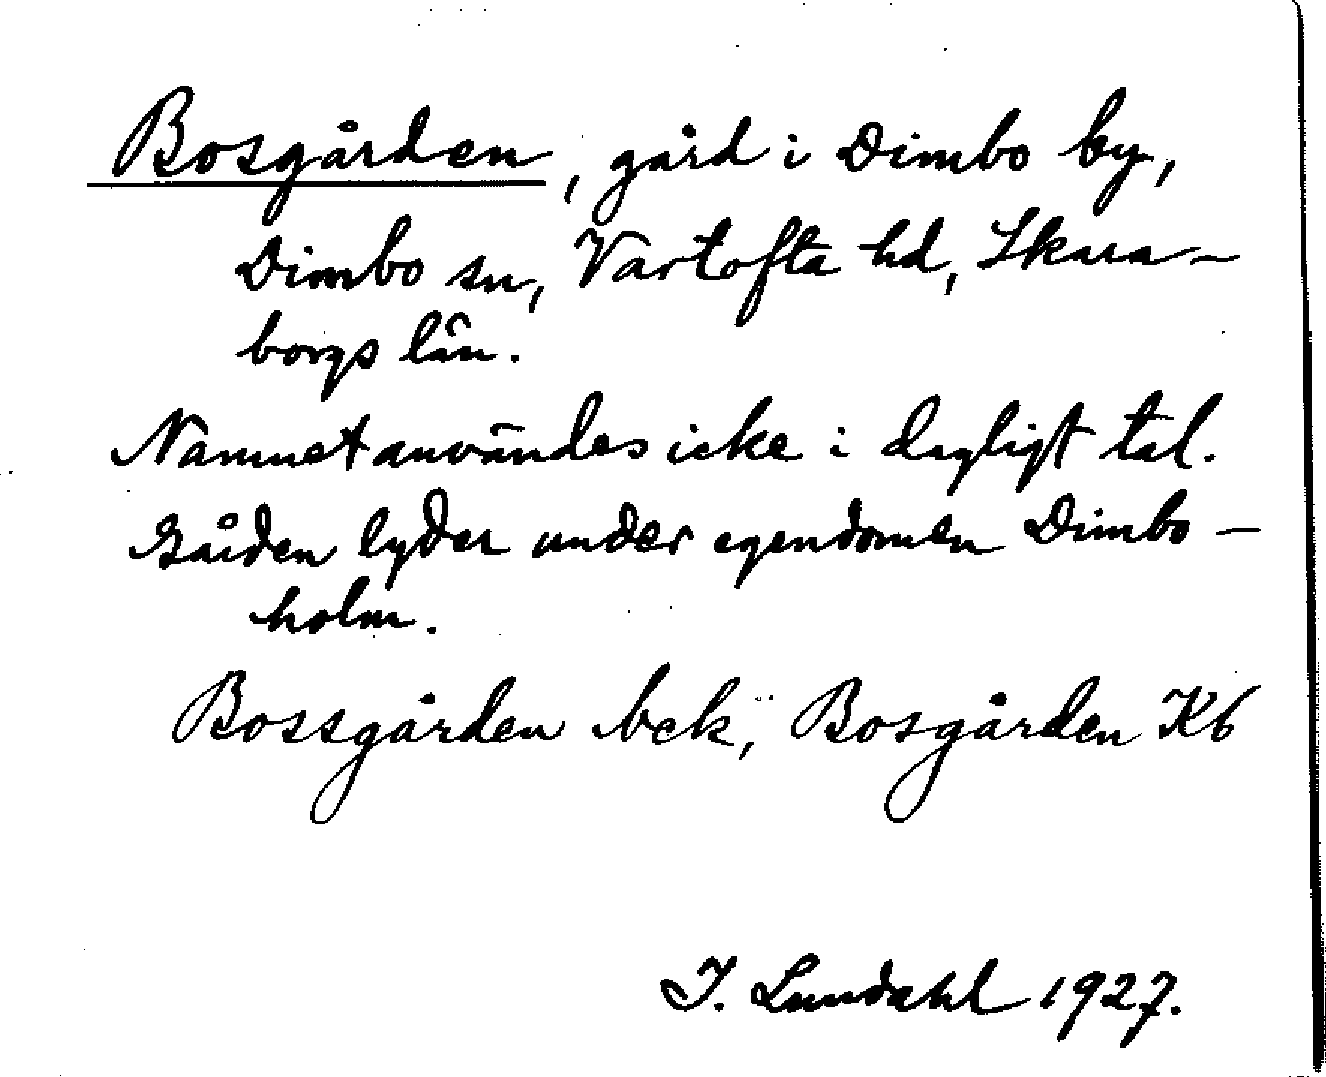 Bosgården, gård i Dimbo by,
Dimbo sn, Vartofta hd, Skara-
borgs län.
Namnet användes icke i dagligt tal.
Gården lyder under egendomen Dimbo-
holm.
Bossgården bck, Bosgården Kb
I. Lundahl 1927.